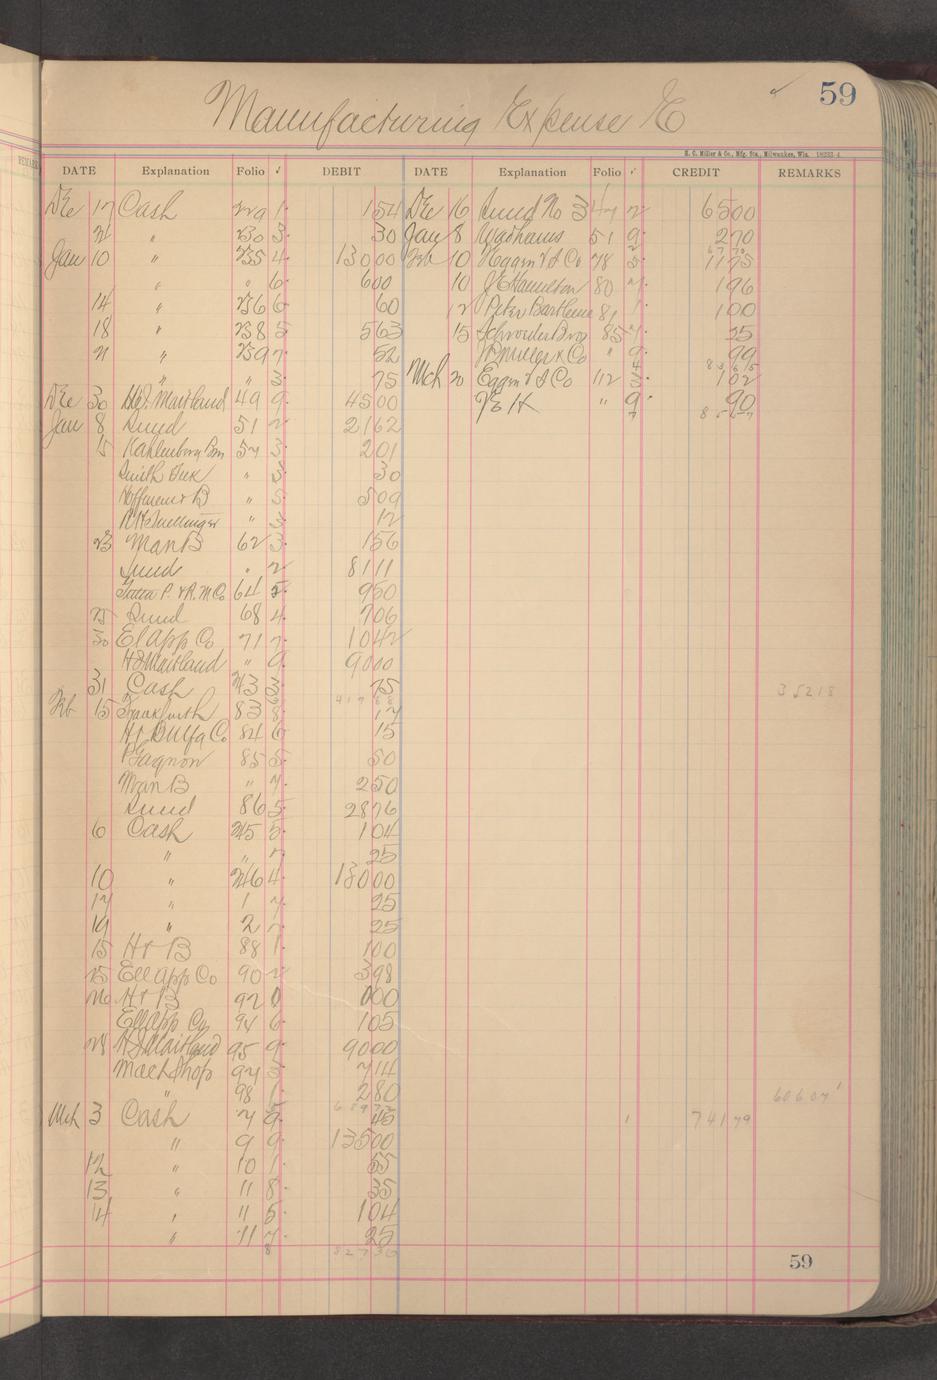 59
Manufacturing Expense E
H. C. Miller & Co., Mfg. Sta., Milwaukee, Wis. 18233-4.
DATE Explanation Folio ✓ DEBIT DATE Explanation Folio ✓ CREDIT REMARKS
Dec 17 Cash 229 1 154 Dec 16 Sund No 3 47 2 6500
21 " 230 3 30 Jan 8 Wadhams 51 9 270
Jan 10 " 235 4 13000 Feb 10 78 5 1175
" " 6 600 10 J E Hamilton 80 7 196
14 " 236 6 60 12 Peter Barthleme 81 1 100
18 " 238 5 563 15 Schroeder Bros 85 7 25
21 " 239 7 52 " 9 99
" " 3 75 Mch 20 112 3 102
Dec 30 H J Maitland 49 9 4500 " 9 90
Jan 8 Sund 51 2 2162 8567
15 57 3 201
" 3 30
Hoffman & B " 5 509
" 3 12
23 Man B 62 3 156
Sund " 2 8111
64 5 950
25 Sund 68 4 706
30 El App Co 71 7 1042
H J Maitland " 9 9000
31 Cash 243 3 75 35218
41768
Feb 15 Frankfurth 83 8 17
84 6 15
P Gagnon 85 5 50
Man B " 7 250
Sund 86 5 2876
6 Cash 245 5 104
" " 7 25
10 " 246 4 13000
17 " 1 7 25
19 " 2 7 25
15 H & B 88 1 100
25 Ell App Co 90 2 398
26 H & B 92 0 000
Ell App Co 94 6 105
28 H J Maitland 95 9 9000
Mach Shop 97 3 714
" 98 1 280 60607
Mch 3 Cash 7 9 45 74179
" 9 9 13500
12 " 10 1 55
13 " 11 8 35
14 " 11 5 104
" 11 7 25
8 82736
59